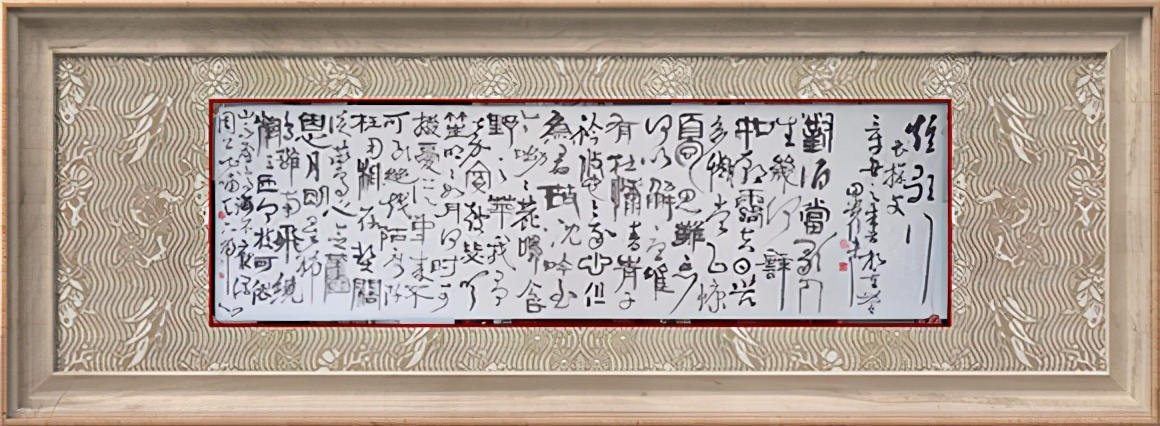 短歌行
曹操文
對酒當歌人
生幾何譬
如朝露去日苦
多慨當以慷
憂思難忘
何以解憂唯
有杜康青青子
衿悠悠我心但
為君故沈吟至
今呦呦鹿鳴食
野之苹我有
嘉賓鼓瑟吹
笙明明如月何時可
掇憂從中來不
可斷絕越陌度阡
枉用相存契闊
談讌心念舊
恩月明星稀
烏鵲南飛繞
樹三匝何枝可依
山不厭高海不厭深
周公吐哺天下歸心